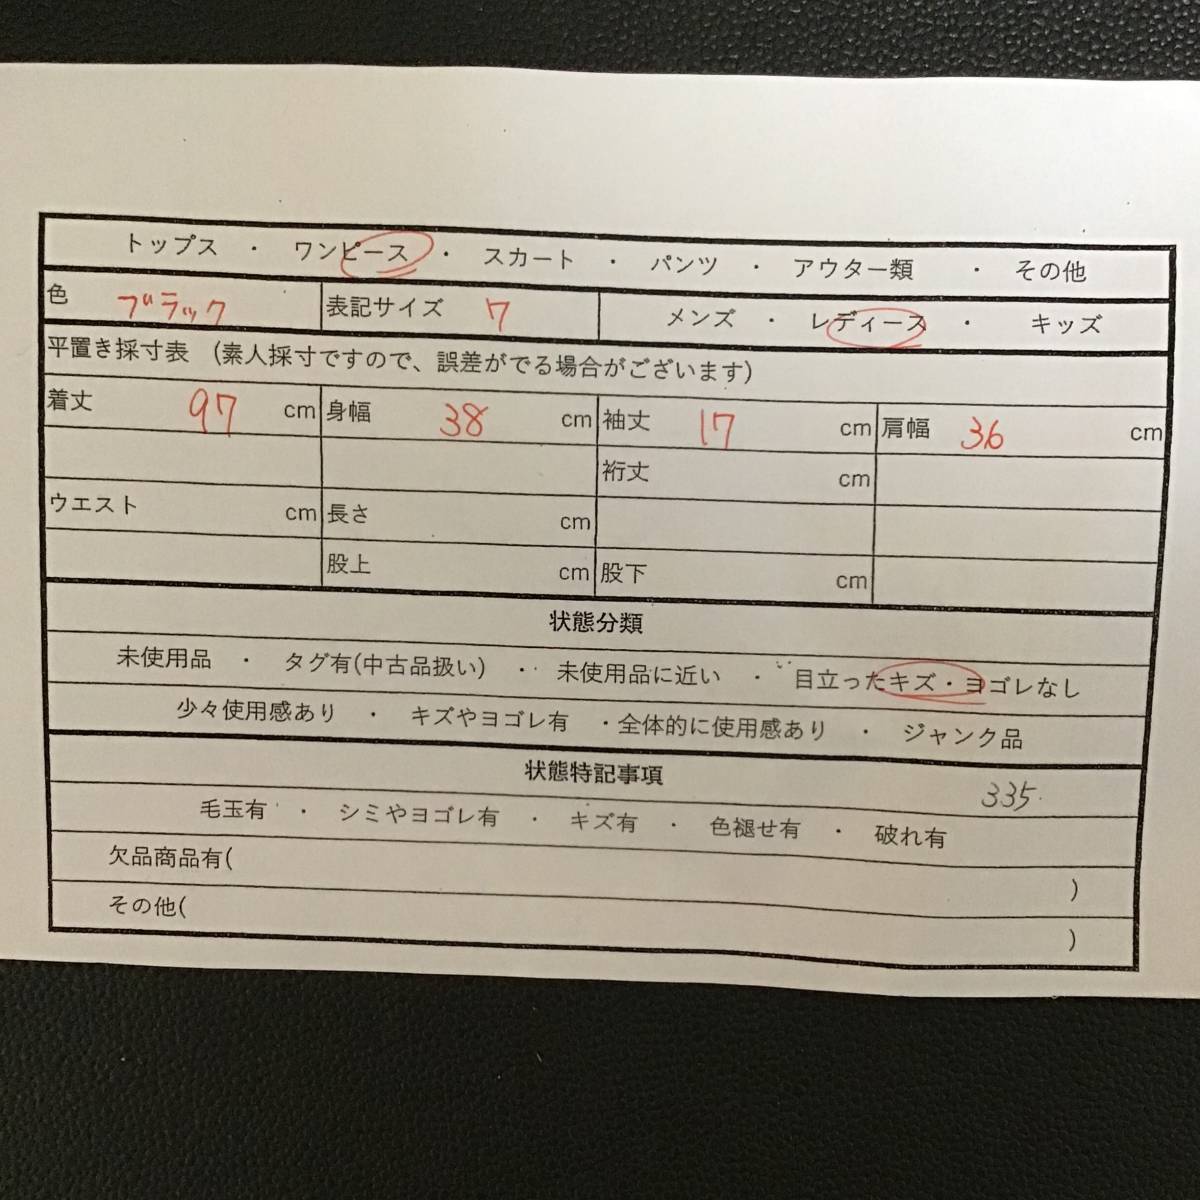 トップス ・ ワンピース ・ スカート ・ パンツ ・ アウター類 ・ その他
色 ブラック 表記サイズ 7 メンズ ・ レディース ・ キッズ
平置き採寸表 (素人採寸ですので、誤差がでる場合がございます)
着丈 97 cm 身幅 38 cm 袖丈 17 cm 肩幅 36 cm
裄丈 cm
ウエスト cm 長さ cm
股上 cm 股下 cm
状態分類
未使用品 ・ タグ有(中古品扱い) ・ 未使用品に近い ・ 目立ったキズ・ヨゴレなし
少々使用感あり ・ キズやヨゴレ有 ・全体的に使用感あり ・ ジャンク品
状態特記事項 335
毛玉有 ・ シミやヨゴレ有 ・ キズ有 ・ 色褪せ有 ・ 破れ有
欠品商品有( )
その他( )